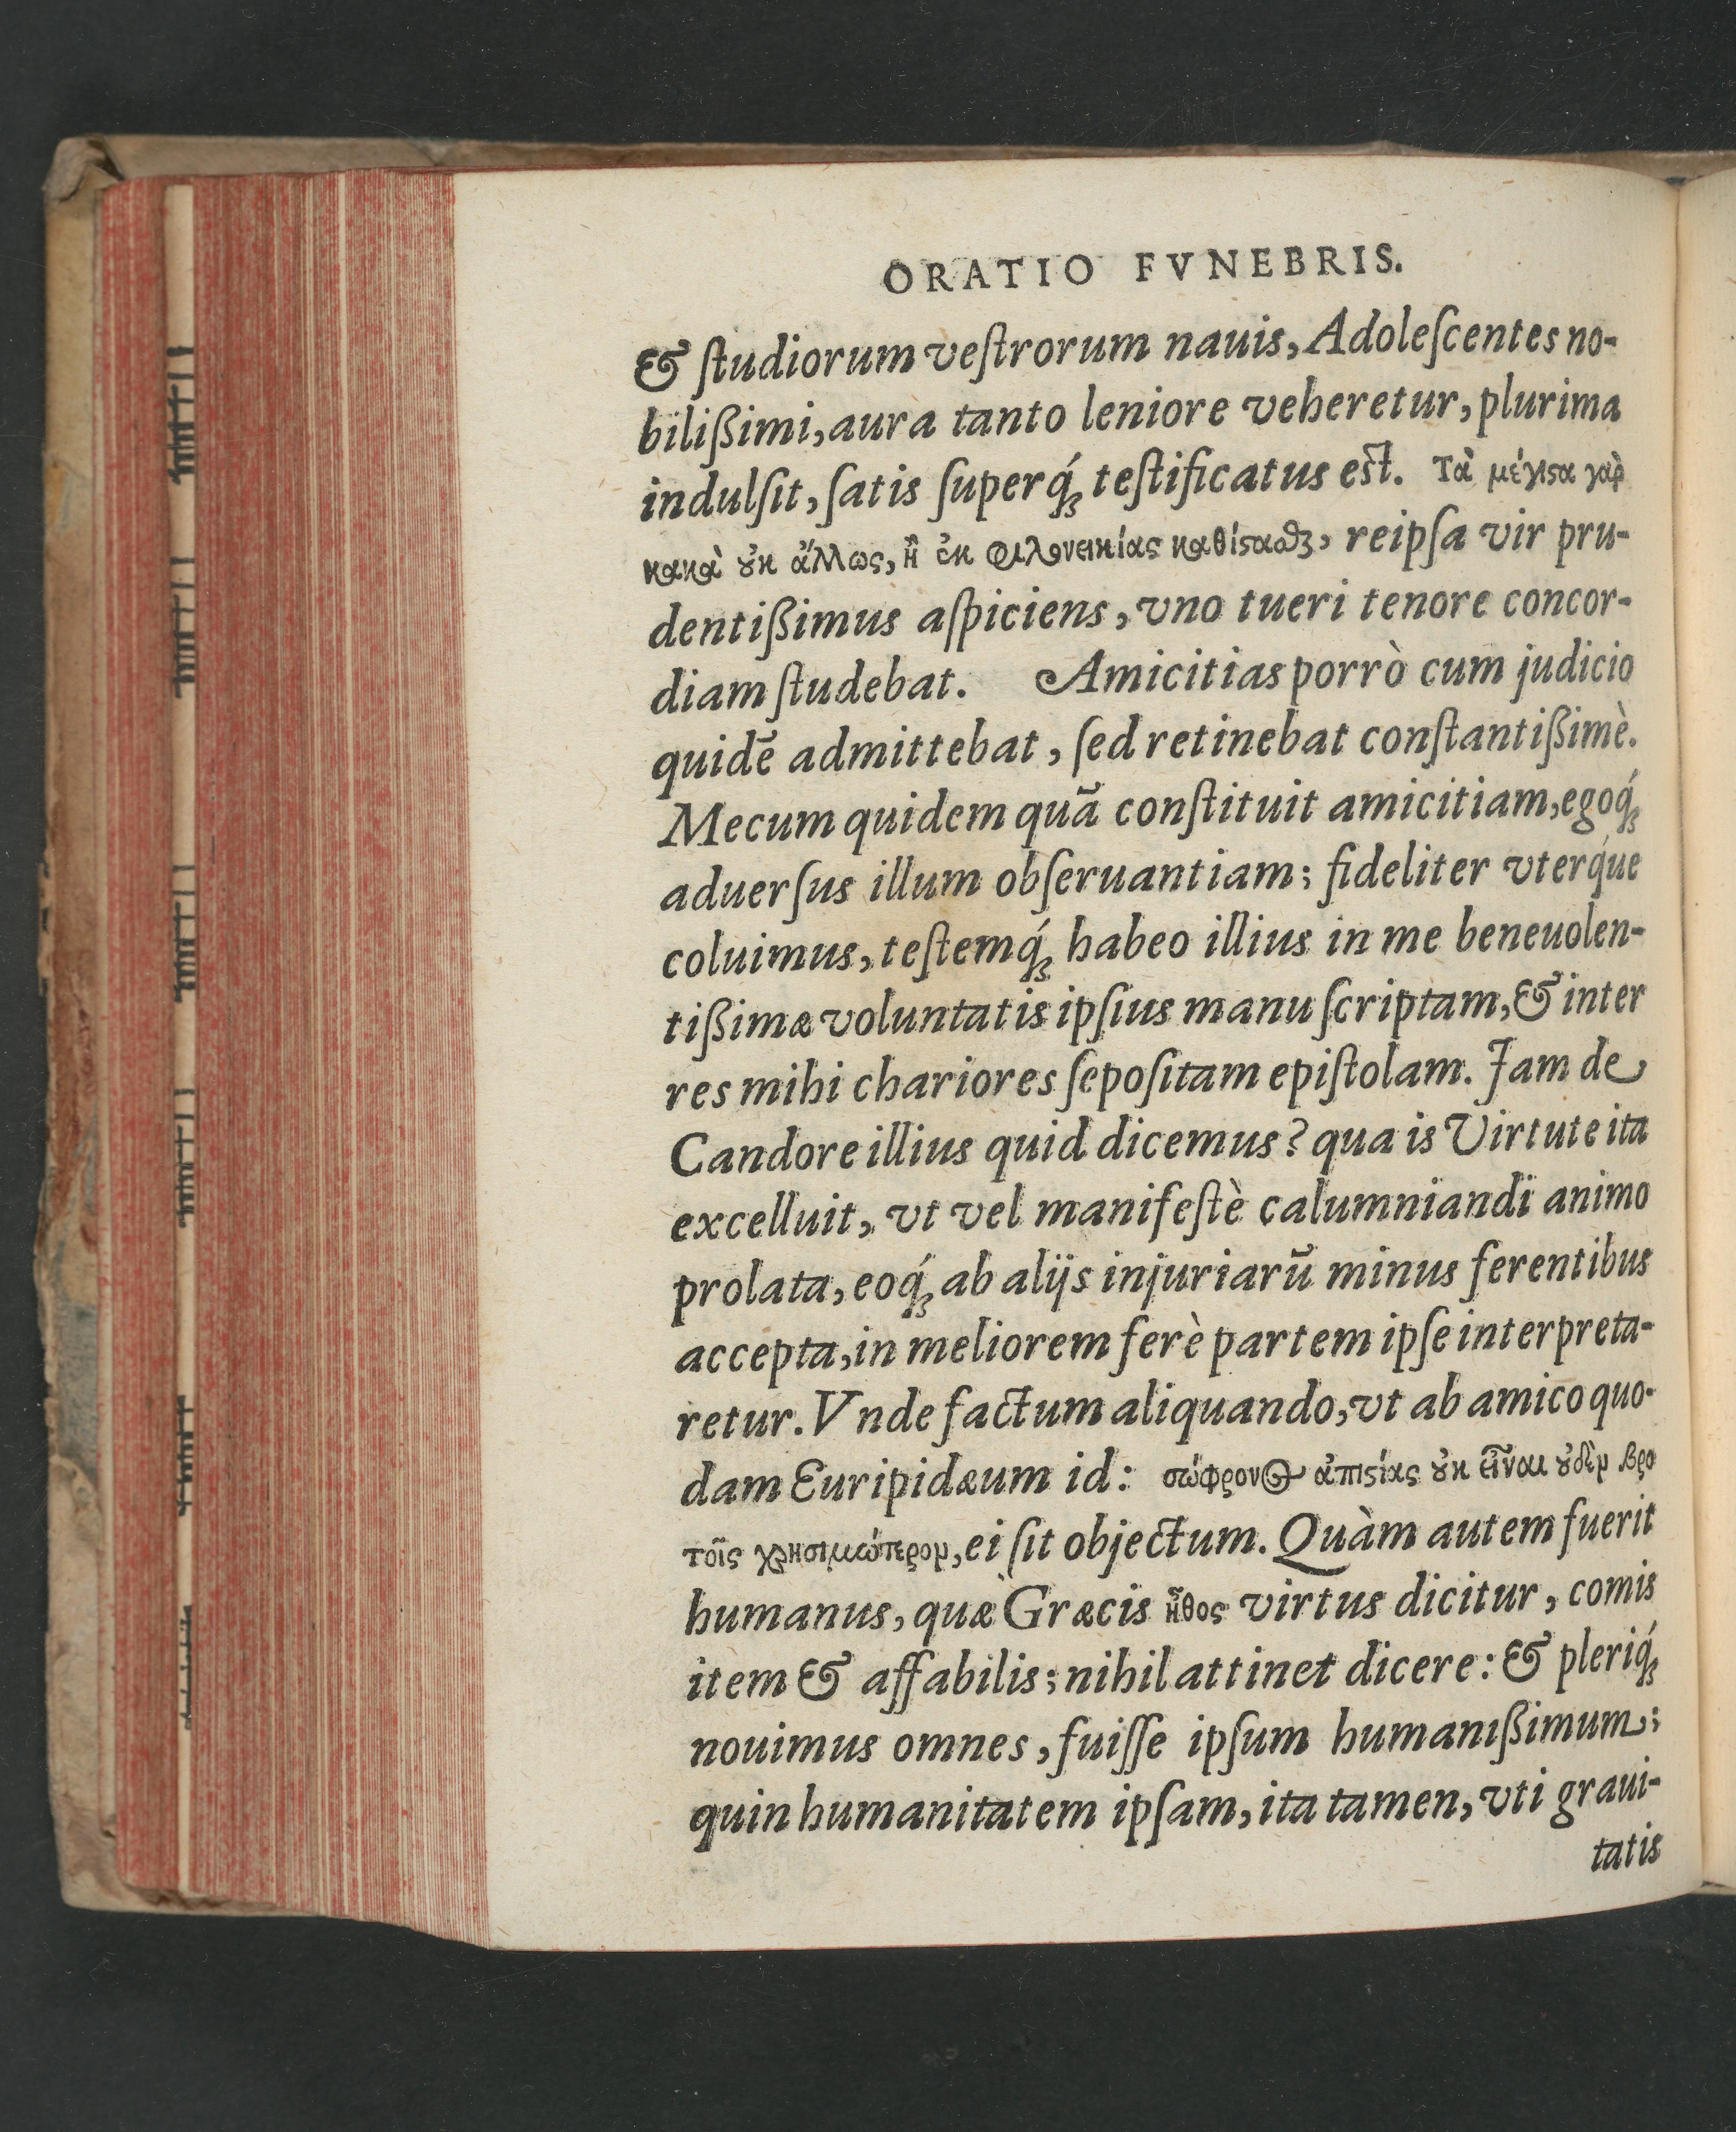 ORATIO FVNEBRIS.
& ſtudiorum veſtrorum nauis, Adoleſcentes no-
bilißimi, aura tanto leniore veheretur, plurima
indulſit, ſatis ſuperq́; teſtificatus eſt. Τὰ μέγιϛα γὰρ
κακὰ ȣ̓κ ἄλλως, ἢ ἐκ φιλονεικίας καθίϛαϑζ, reipſa vir pru-
dentißimus aſpiciens, vno tueri tenore concor-
diam ſtudebat. Amicitias porrò cum judicio
quidē admittebat, ſed retinebat conſtantißimè.
Mecum quidem quā conſtituit amicitiam, egoq́;
aduerſus illum obſeruantiam; fideliter vterq́ue
coluimus, teſtemq́; habeo illius in me beneuolen-
tißimæ voluntatis ipſius manu ſcriptam, & inter
res mihi chariores ſepoſitam epiſtolam. Jam de
Candore illius quid dicemus? qua is Virtute ita
excelluit, vt vel manifeſtè calumniandi animo
prolata, eoq́; ab alijs injuriarū minus ferentibus
accepta, in meliorem ferè partem ipſe interpreta-
retur. Vnde factum aliquando, vt ab amico quo-
dam Euripidæum id: σώφρον⊙ ἀπιϛίας ȣ̓κ εἶναι ȣ̓δὲν βρο
τοῖς χρησιμώτερον, ei ſit objectum. Quàm autem fuerit
humanus, quæ Græcis ἦθος virtus dicitur, comis
item & affabilis; nihil attinet dicere: & pleriq́;
nouimus omnes, fuiſſe ipſum humanißimum;
quin humanitatem ipſam, ita tamen, vti graui-
tatis